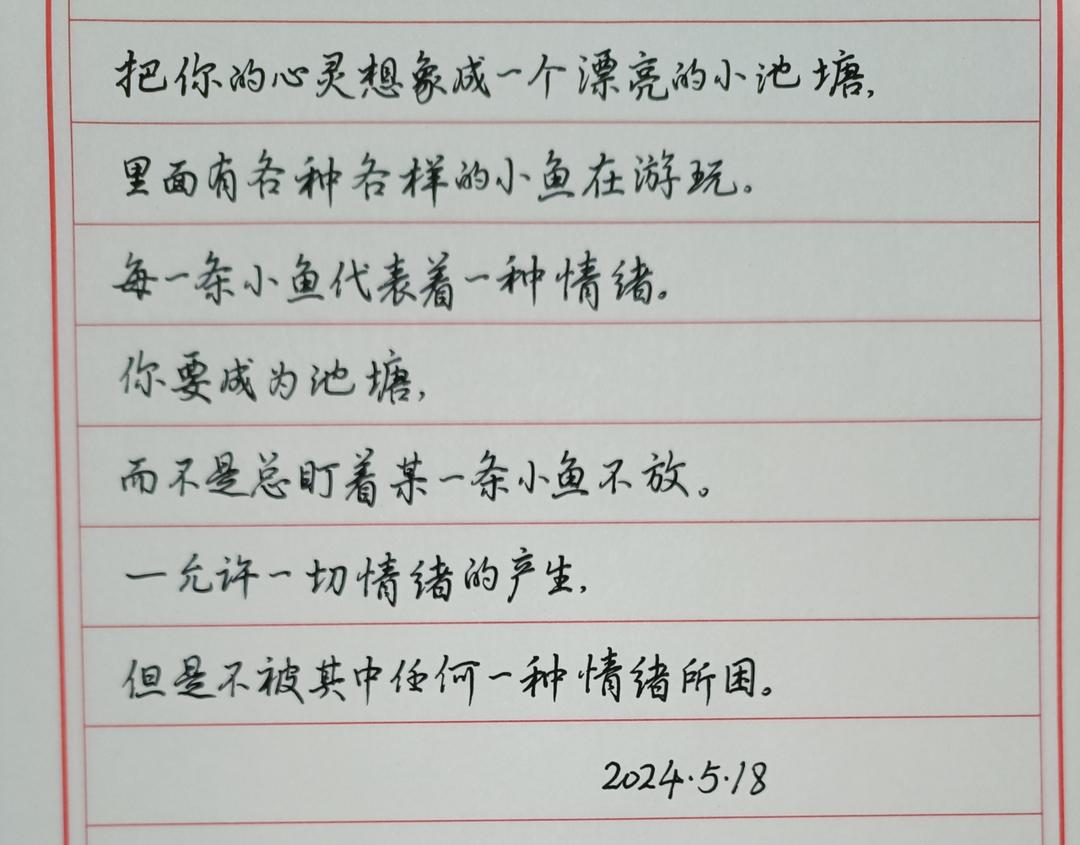 把你的心灵想象成一个漂亮的小池塘,
里面有各种各样的小鱼在游玩。
每一条小鱼代表着一种情绪。
你要成为池塘,
而不是总盯着某一条小鱼不放。
一允许一切情绪的产生,
但是不被其中任何一种情绪所困。
2024.5.18